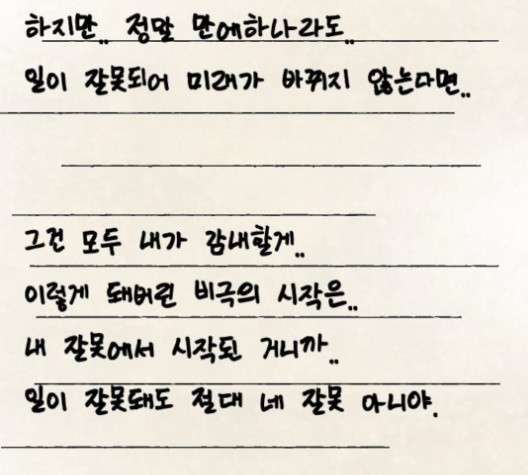 하지만.. 정말 만에하나라도..
일이 잘못되어 미래가 바뀌지 않는다면..
그건 모두 내가 감내할게..
이렇게 돼버린 비극의 시작은..
내 잘못에서 시작된 거니까..
일이 잘못돼도 절대 네 잘못 아니야.